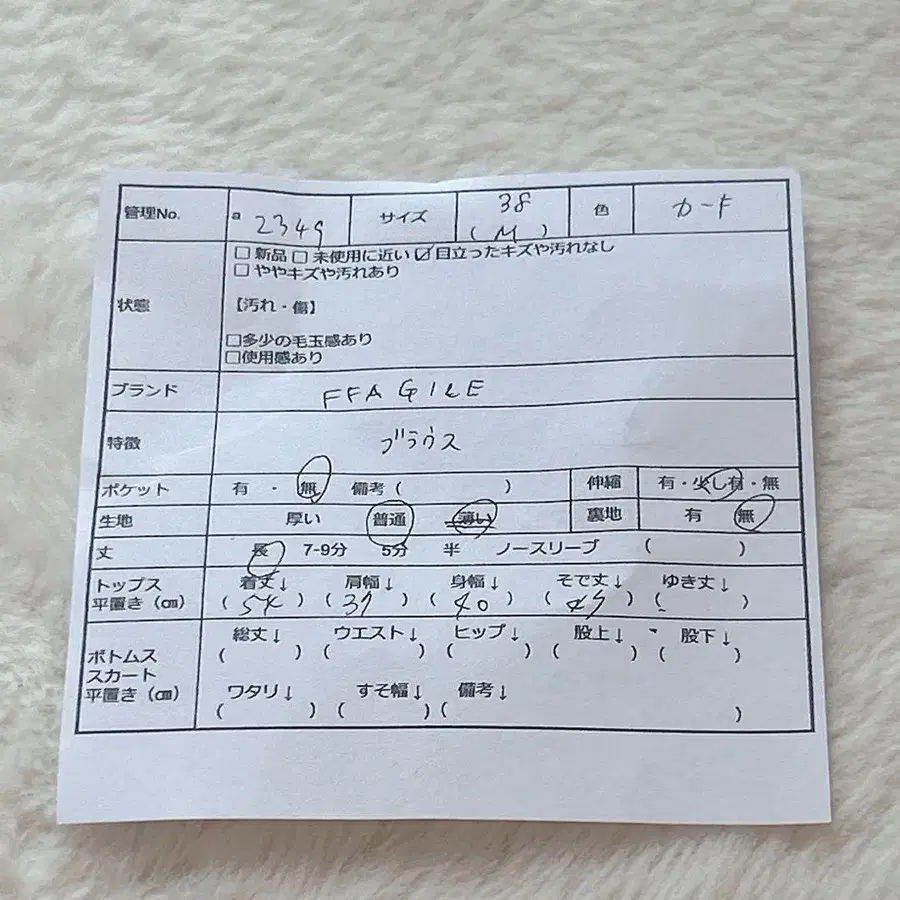 管理No. a 2349 サイズ 38 (M) 色 カーキ
□ 新品 □ 未使用に近い ☑ 目立ったキズや汚れなし
□ ややキズや汚れあり
状態 【汚れ・傷】
□多少の毛玉感あり
□使用感あり
ブランド FFAGILE
特徴 ブラウス
ポケット 有 ・ 無 備考 ( ) 伸縮 有・少し有・無
生地 厚い 普通 薄い 裏地 有 無
丈 長 7-9分 5分 半 ノースリーブ ( )
トップス 着丈↓ 肩幅↓ 身幅↓ そで丈↓ ゆき丈↓
平置き (㎝) ( 54 ) ( 37 ) ( 40 ) ( ) ( )
総丈↓ ウエスト↓ ヒップ↓ 股上↓ 股下↓
ボトムス ( ) ( ) ( ) ( ) ( )
スカート
平置き (㎝) ワタリ↓ すそ幅↓ 備考↓
( ) ( ) ( )